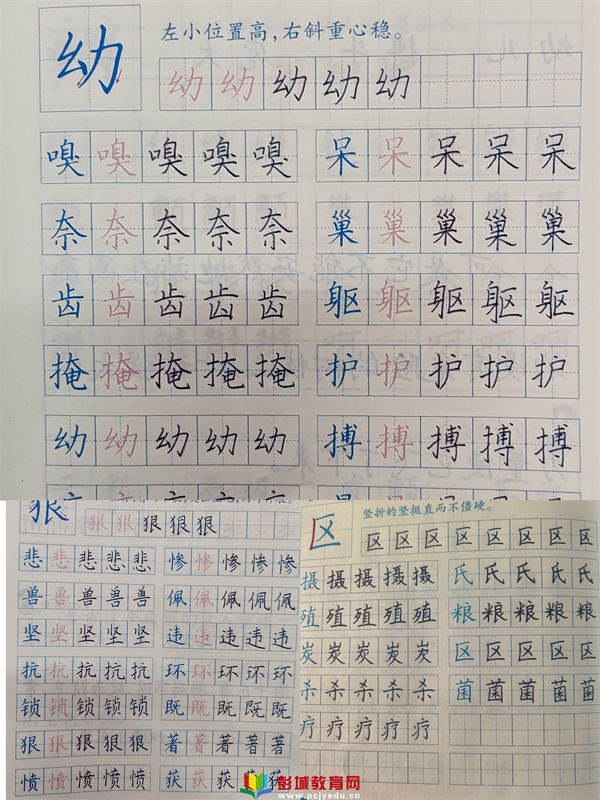 幼 左小位置高,右斜重心稳。
幼 幼 幼 幼 幼
嗅 嗅 嗅 嗅 嗅 呆 呆 呆 呆 呆
奈 奈 奈 奈 奈 巢 巢 巢 巢 巢
齿 齿 齿 齿 齿 躯 躯 躯 躯 躯
掩 掩 掩 掩 掩 护 护 护 护 护
幼 幼 幼 幼 幼 搏 搏 搏 搏 搏
狠
狠 狠 狠 狠 狠
悲 悲 悲 悲 悲 惨 惨 惨 惨 惨
兽 兽 兽 兽 兽 佩 佩 佩 佩 佩
坚 坚 坚 坚 坚 违 违 违 违 违
抗 抗 抗 抗 抗 环 环 环 环 环
锁 锁 锁 锁 锁 既 既 既 既 既
狠 狠 狠 狠 狠 著 著 著 著 著
愤 愤 愤 愤 愤 获 获 获 获 获
区 竖折的竖挺直而不僵硬。
区 区 区 区 区 区 区 区
摄 摄 摄 摄 摄 氏 氏 氏 氏 氏
殖 殖 殖 殖 殖 粮 粮 粮 粮 粮
炭 炭 炭 炭 炭 区 区 区 区 区
杀 杀 杀 杀 杀 菌 菌 菌 菌 菌
疗 疗 疗 疗 疗
彭城教育网
www.pcjyedu.cn